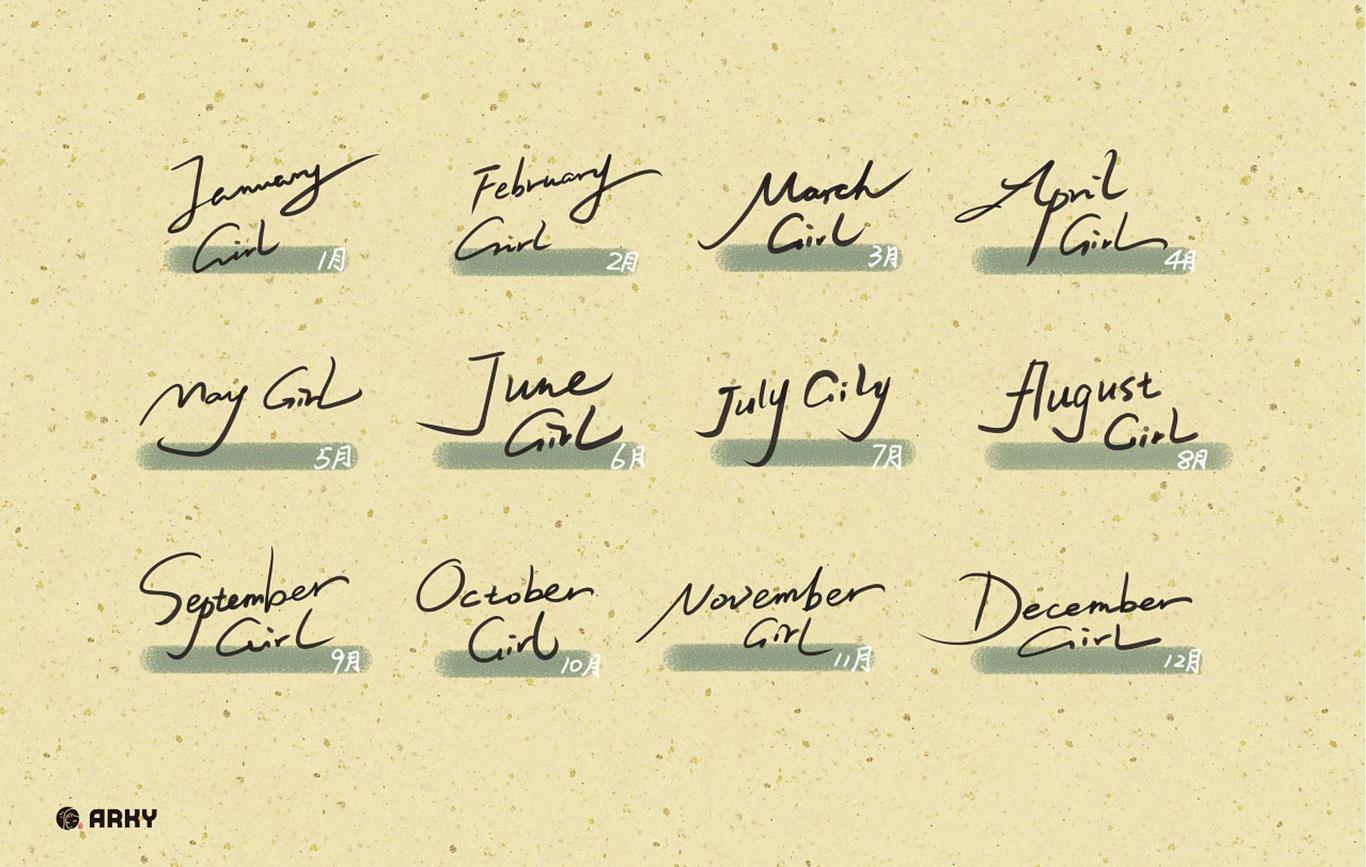 January
Girl
1月
February
Girl
2月
March
Girl
3月
April
Girl
4月
May Girl
5月
June
Girl
6月
July Gily
7月
August
Girl
8月
September
Girl
9月
October
Girl
10月
November
Girl
11月
December
Girl
12月
ARKY